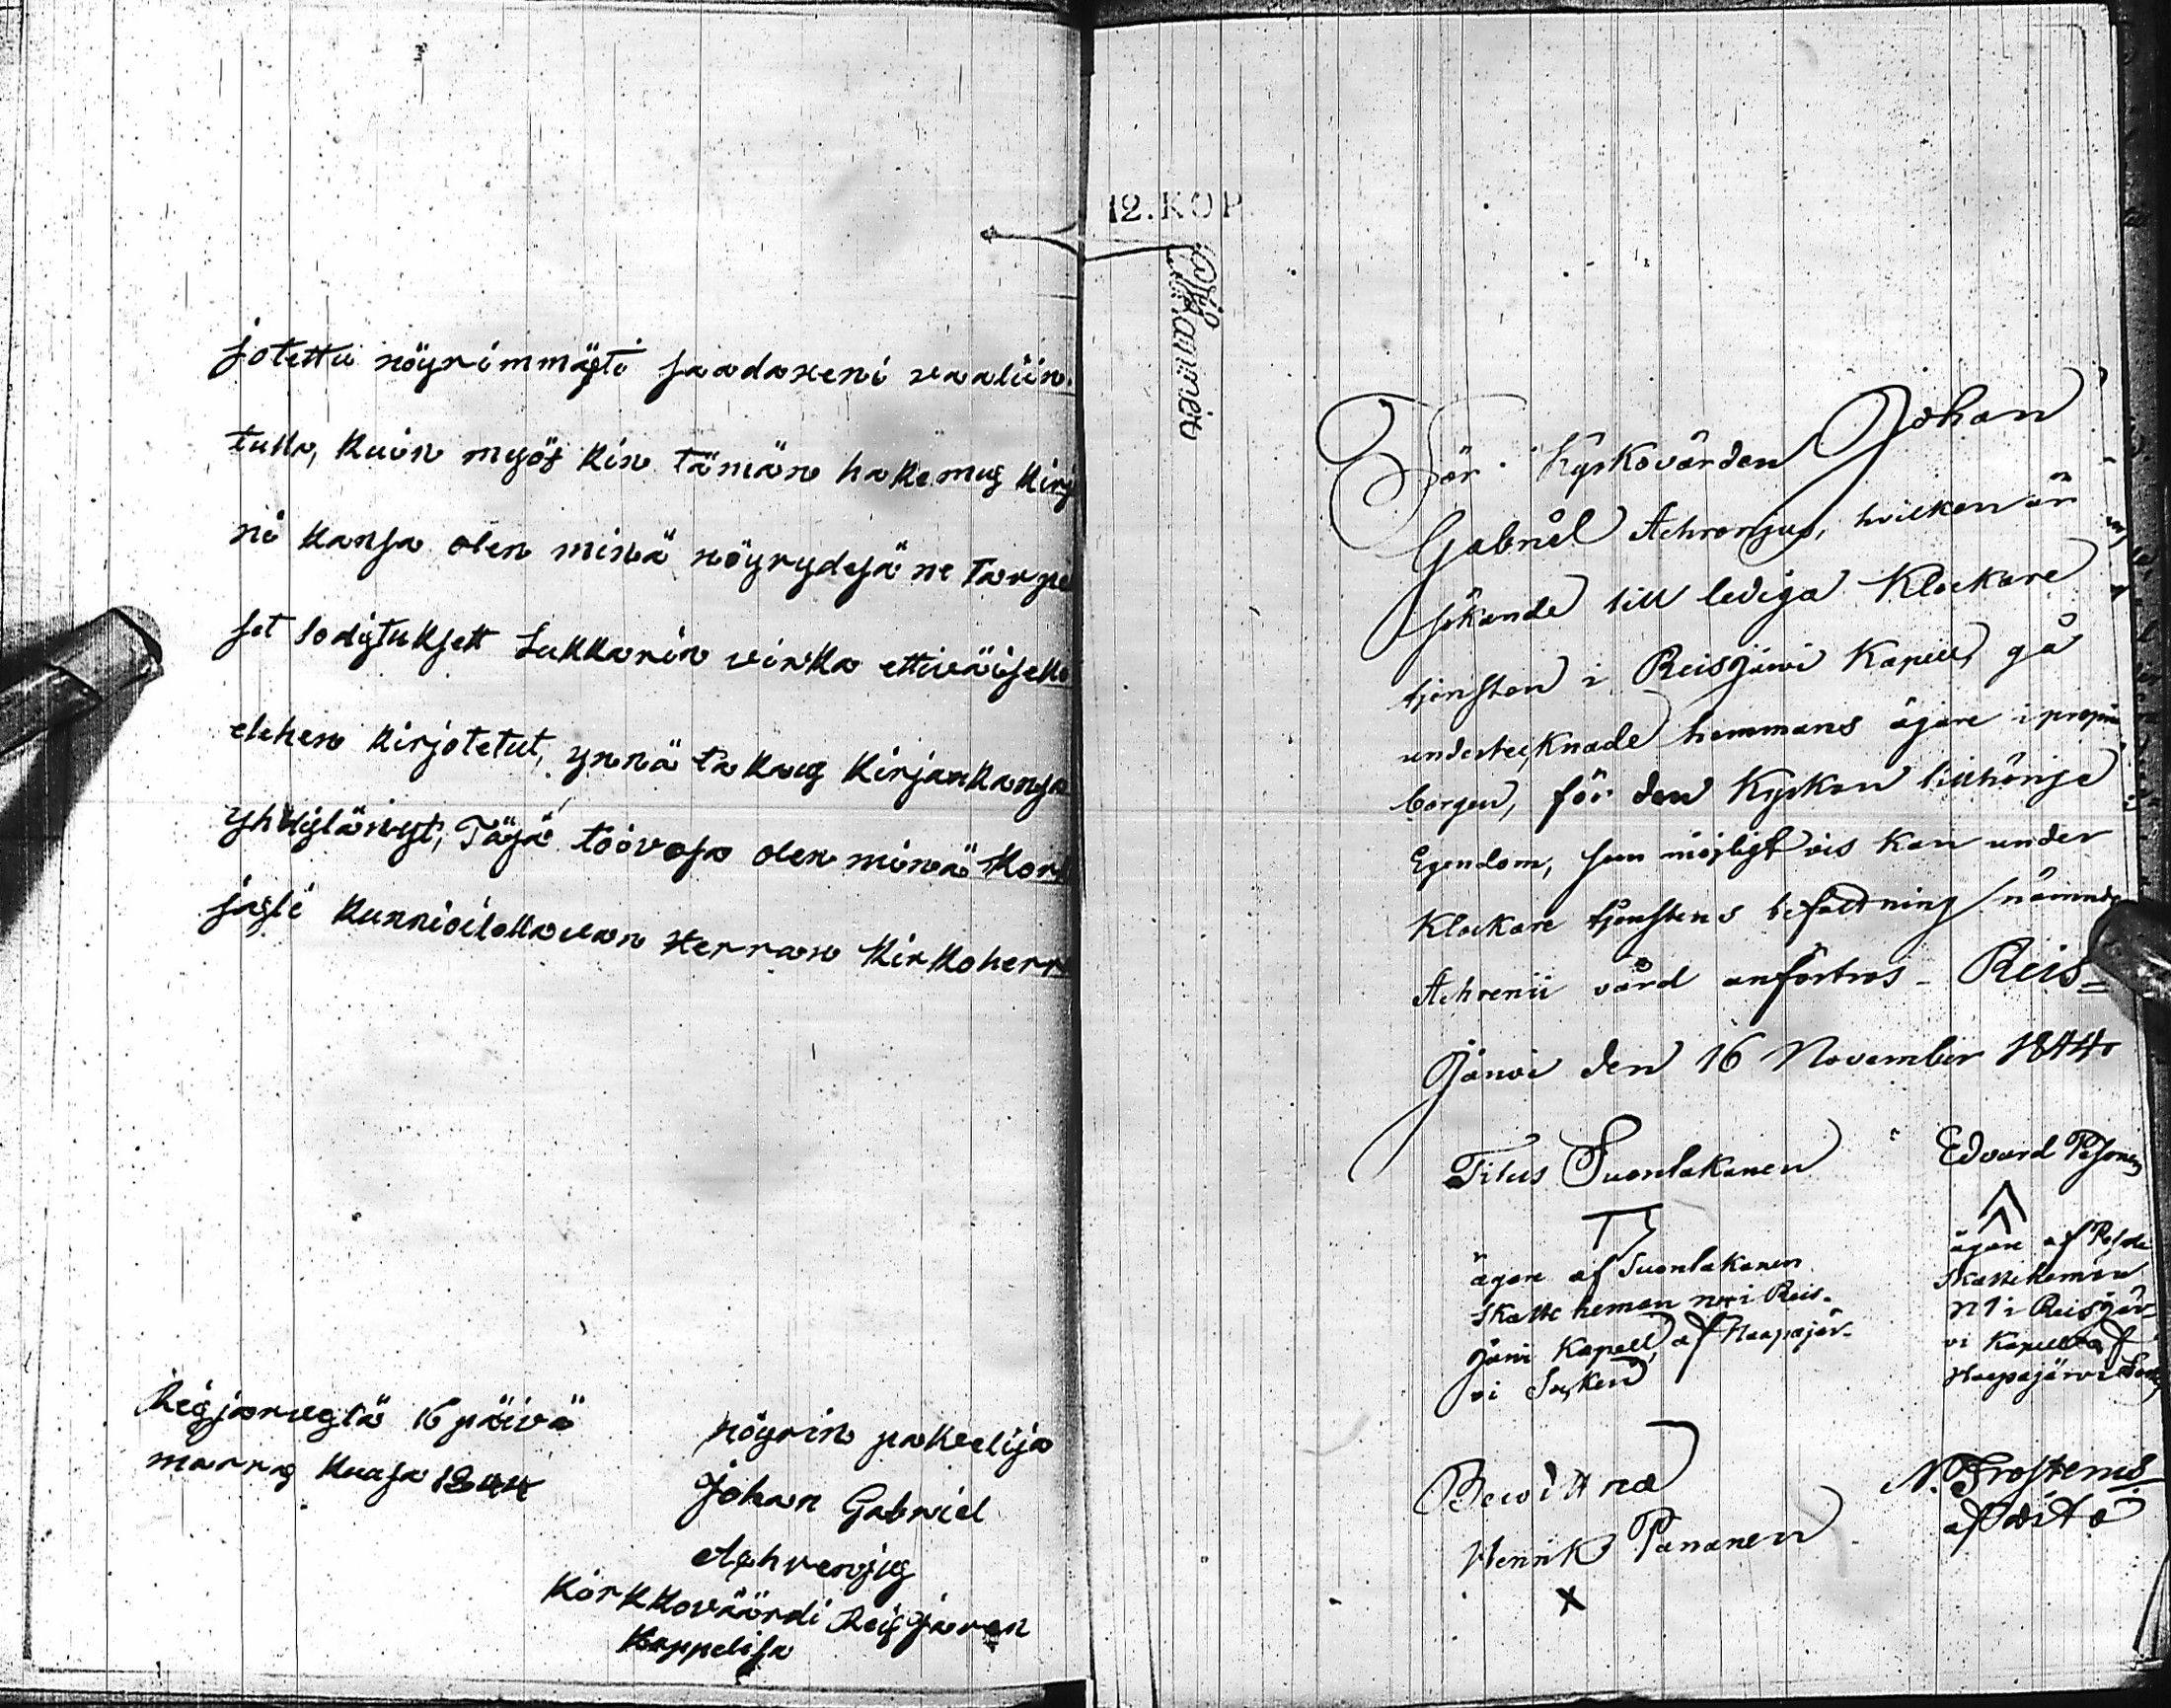 jotettu nöyrimmästi saadaxeni vaaliin
tulla, kuin myös kin tämän hakemus kirj
ni kansa olen minä nöyrydesä ne tarpe
set todistuksett Lukkarin virka
edehen kirjotetut, ynnä takaus kirjan kansa
yhdistänyt, Täsä toivosa olen minä kor
jasti kunnioitettavan Herran Kirkoherr
Reisjärvestä 16 päivä
marras kuusa 1844
nöyrin pakeelija
Johan Gabriel
Achrenius
Körkkoväärdi Reisjärven
Kappelisa
12. KOP
För Kyrkovärden Johan
Gabriel Achrenius, hvilken är
sökande till lediga Klockare
tjensten i Reisjärvi Kapell, gå
undertecknade hemmans ägare i proprie
borgen, för den Kyrkan tillhörige
Egendom, som möjligtvis kan under
Klockare tjenstens befattning nämnde
Achrenii vård anförtros - Reis=
järvi den 16 November 1844
Titus Suonlakanen
ägare af Suonlakanen
Skatte heman i Reis-
järvi Kapell af Haapajär-
vi Socken
Edvard
ägare af
Skattehemman
N 1 i Reisjär-
vi Kapell af
Haapajärvi
Bewittna
Henrik Pananen
X
N. Frosterus